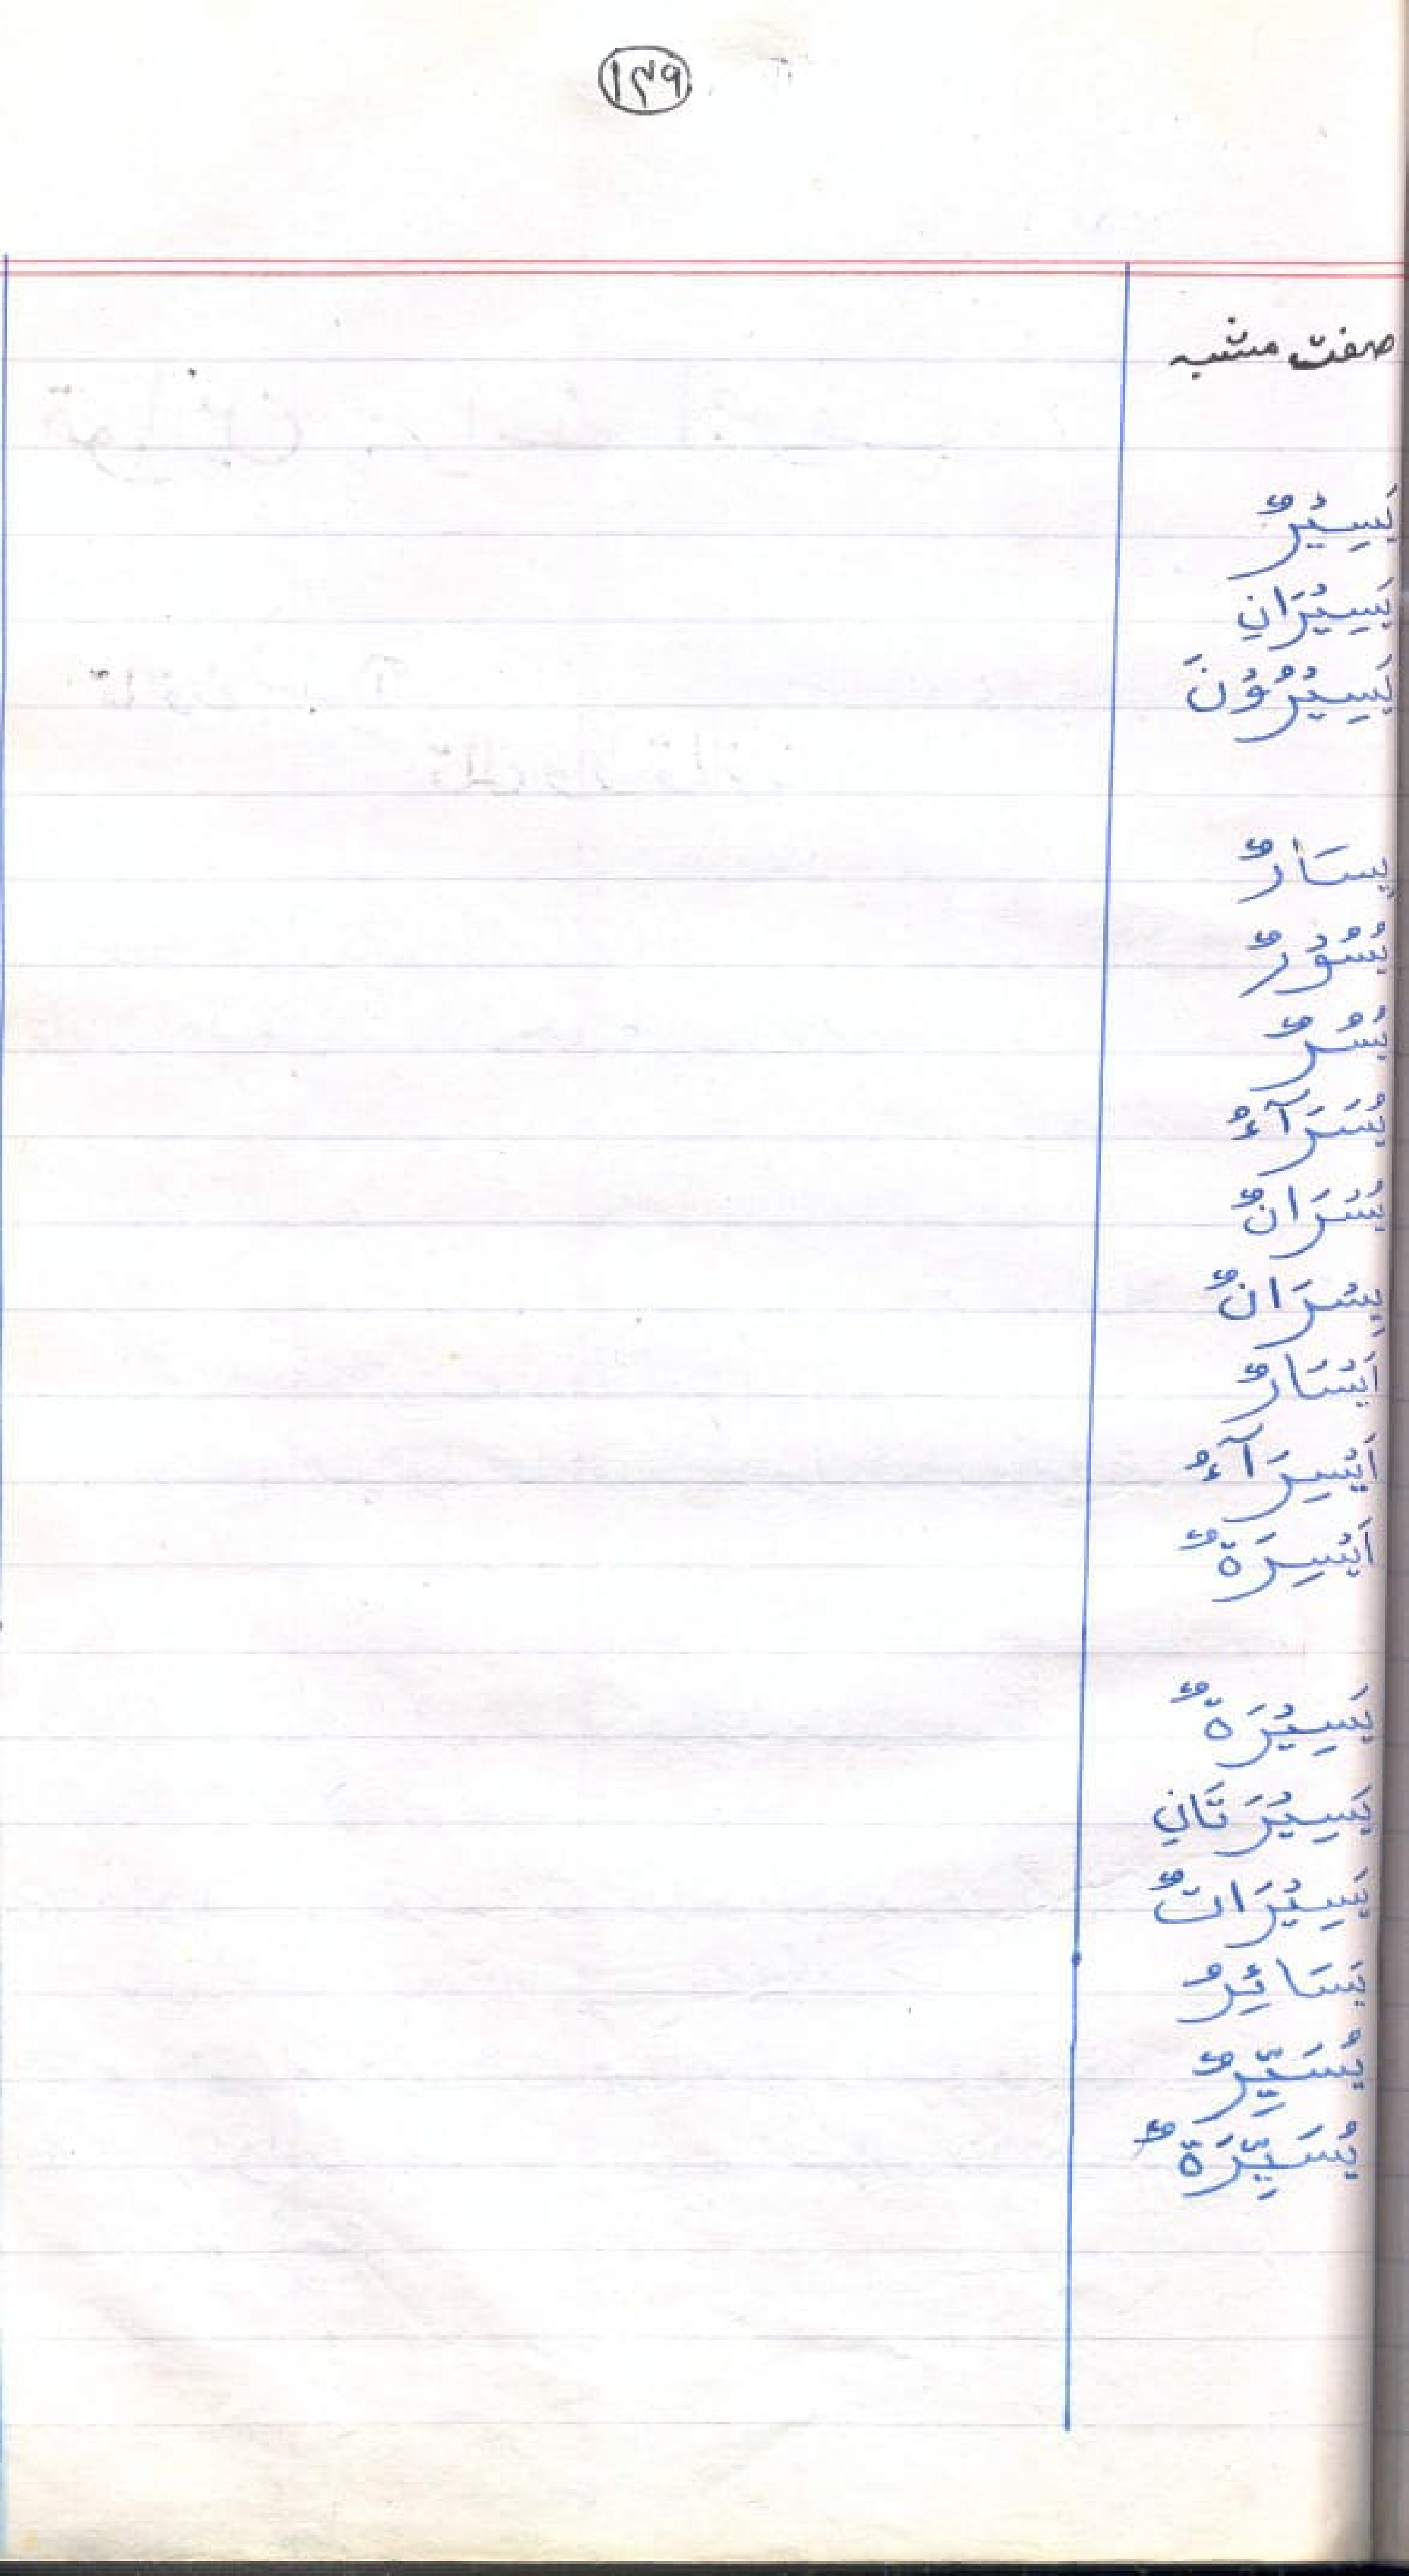 ۱۳۹
صفت مشبہ
يَسِيْرٌ
يَسِيْرَانِ
يَسِيْرُوْنَ
يِسَارٌ
يُسُوْرٌ
يُسُرٌ
يُسَرَآءُ
يُسْرَانٌ
يِسْرَانٌ
اَيْسَارٌ
اَيْسِرَآءُ
اَيْسِرَةٌ
يَسِيْرَةٌ
يَسِيْرَتَانِ
يَسِيْرَاتٌ
يَسَائِرُ
يُسَيِّرٌ
يُسَيِّرَةٌ